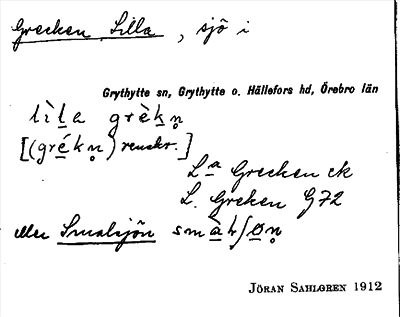 Grecken, Lilla, sjö i
Grythytte sn, Grythytte o. Hällefors hd, Örebro län
lìla grèkn̥
[(grékn̥) renskr.]
La Grecken ek
L. Greken G72
eller Smalsjön smàlʃøn̥
JÖRAN SAHLGREN 1912